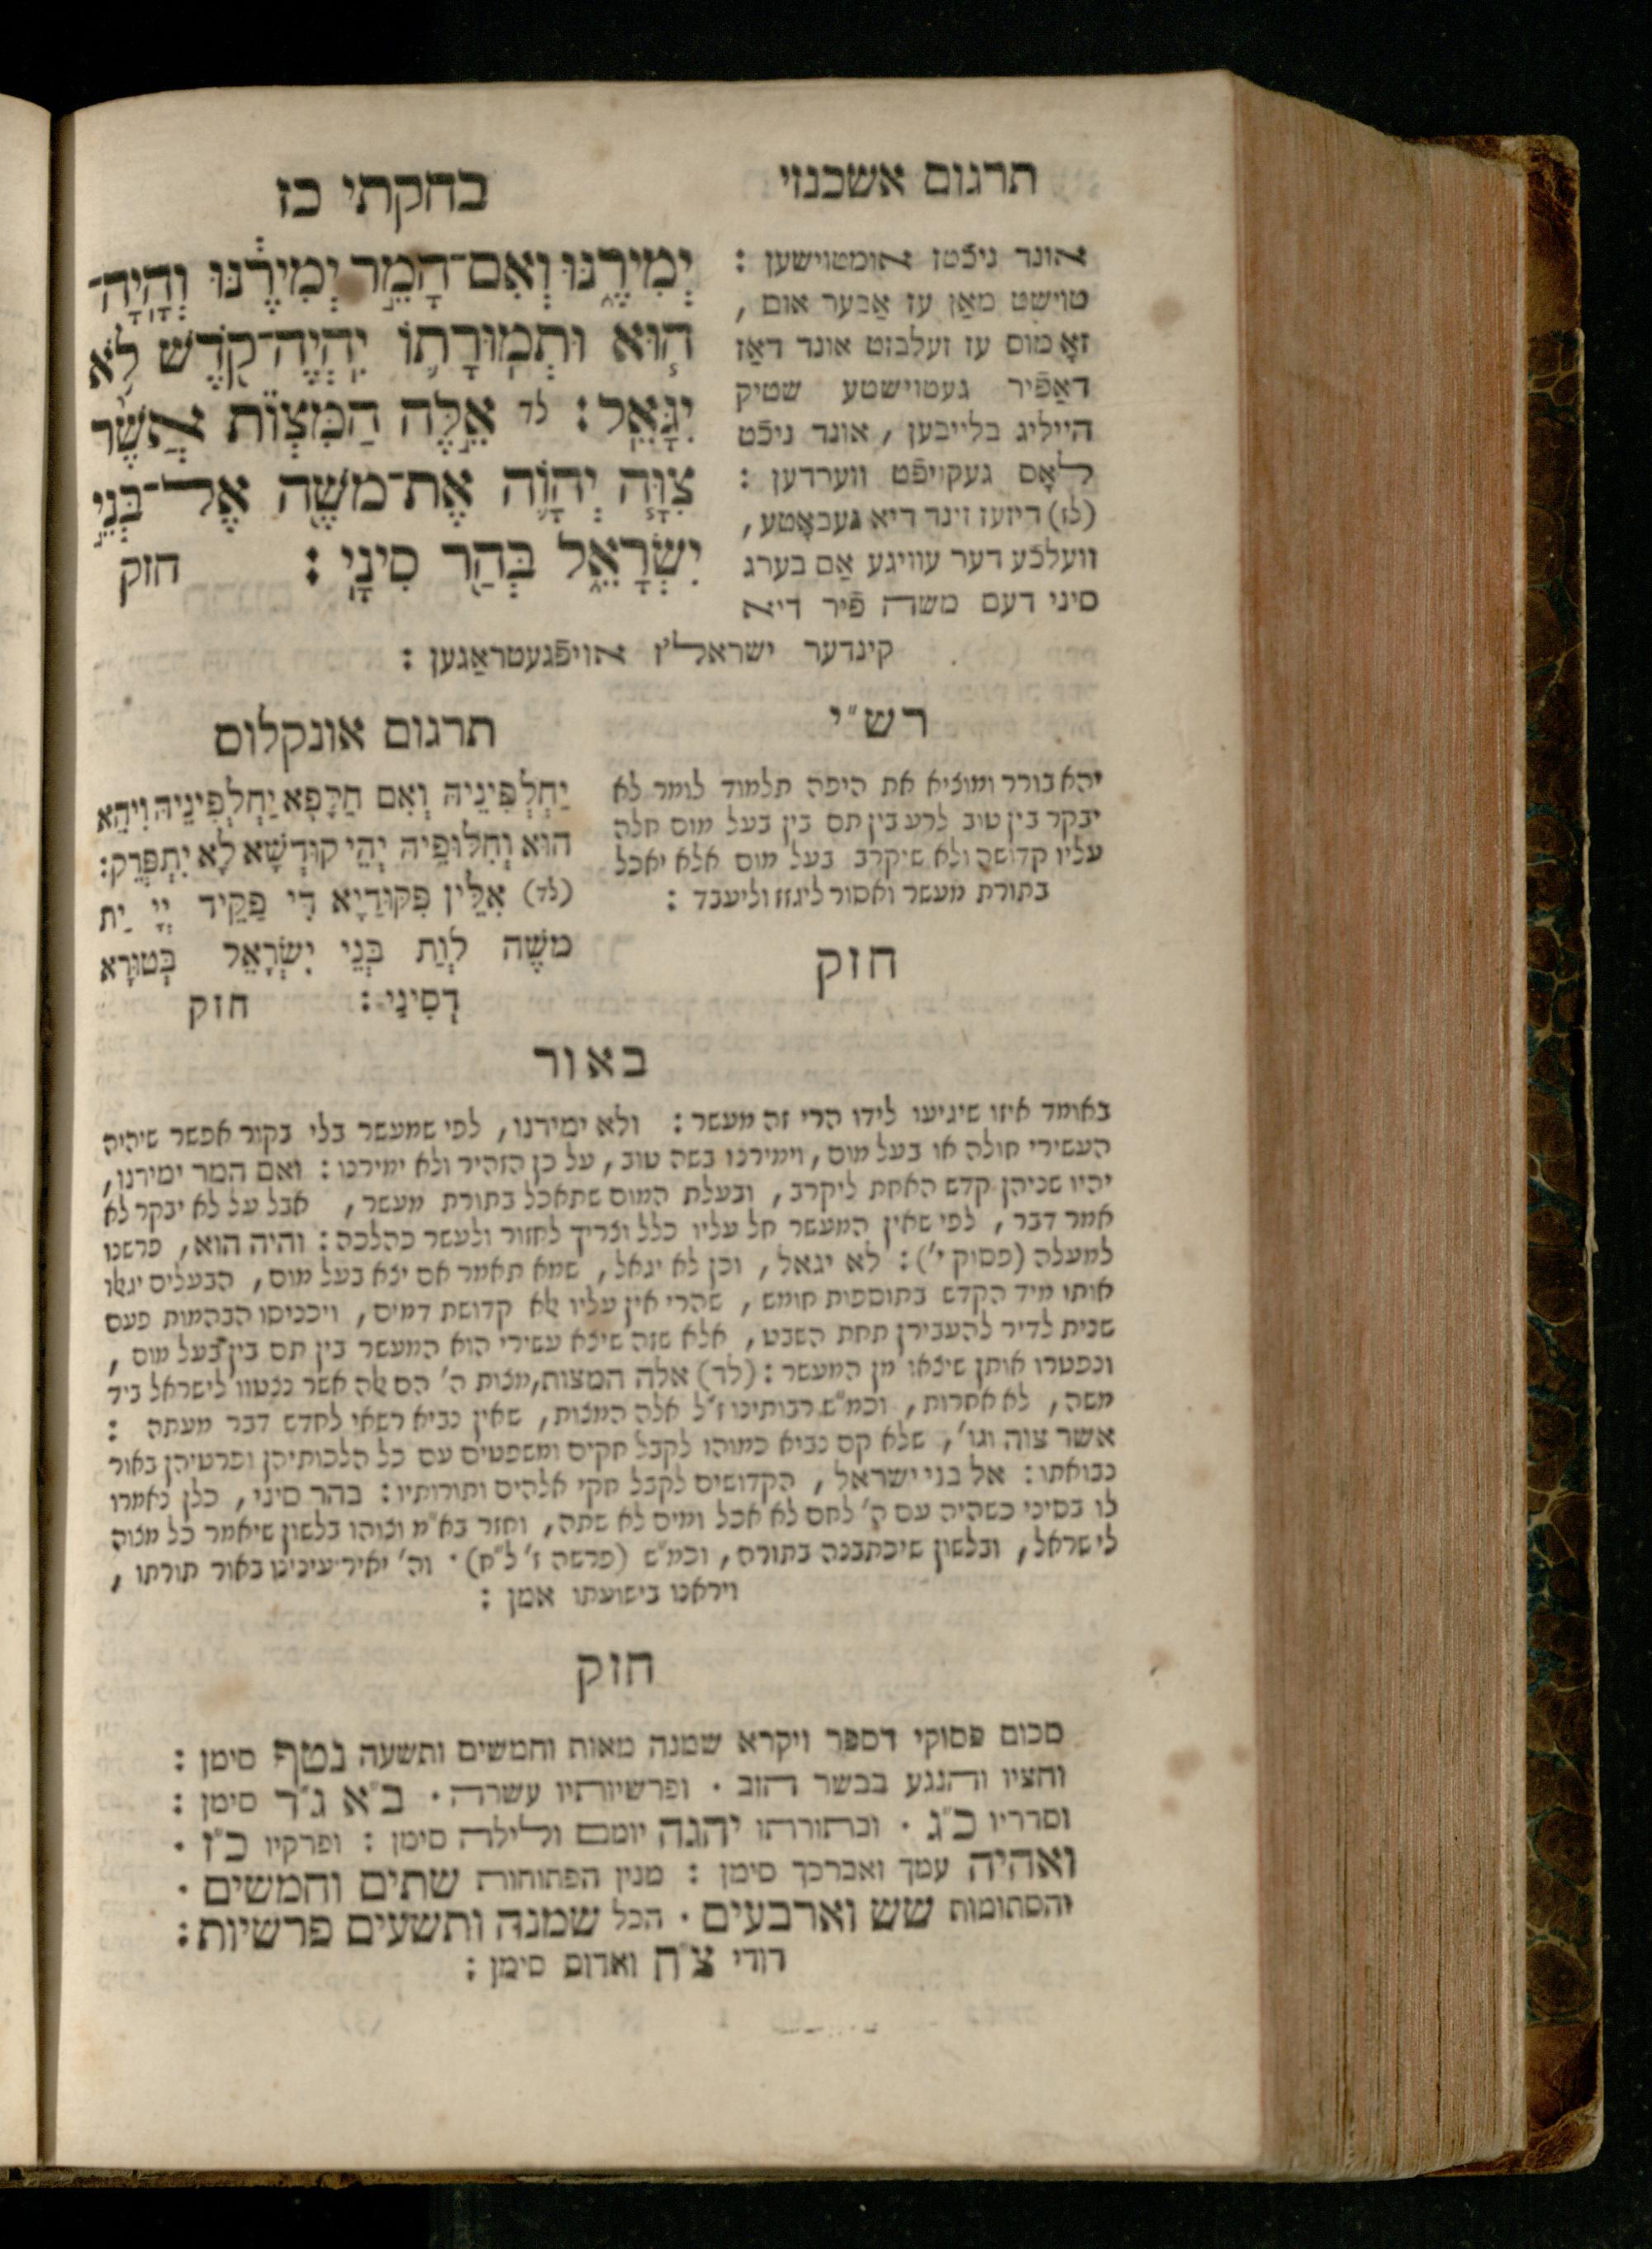 בחקתי כז
יְמִירֶ֑נּוּ וְאִם־הָמֵ֣ר יְמִירֶ֔נּוּ וְהָֽיָה־
ה֧וּא וּתְמוּרָת֛וֹ יִֽהְיֶה־קֹ֖דֶשׁ לֹ֥א
יִגָּאֵֽל : לד אֵ֣לֶּה הַמִּצְוֺ֗ת אֲשֶׁ֨ר
צִוָּ֧ה יְהֹוָ֛ה אֶת־מֹשֶׁ֖ה אֶל־בְּנֵ֣י
יִשְׂרָאֵ֑ל בְּהַ֖ר סִינָֽי : חזק
תרגום אשכנזי
אונד ניכֿטז אומטוישען :
טוישט מאַן עז אַבער אום ,
זאָ מוס עז זעלבזט אונד דאַז
דאַפֿיר געטוישטע שטיק
הייליג בלייבען , אונד ניכֿט
לאָס געקויפֿט ווערדען :
(לז) דיזעז זינד דיא געבאָטע ,
וועלכֿע דער עוויגע אַם בערג
סיני דעם משה פֿיר דיא
קינדער ישראל'ז אויפֿגעטראַגען :
רש"י
יהא בורר ומוציא את היפה תלמוד לומר לא
יבקר בין טוב לרע בין תם בין בעל מום חלה
עליו קדושה ולא שיקרב בעל מום אלא יאכל
בתורת מעשר ואסור ליגזז וליעבד :
חזק
תרגום אונקלוס
יַחְלְפִינֵיהּ וְאִם חַלָּפָא יַחְלְפִינֵיהּ וִיהֵא
הוּא וְחִלּוּפֵיהּ יְהֵי קוּדְשָׁא לָא יִתְפְּרֵק :
(לד) אִלֵּין פִּקּוּדַיָא דִי פַקֵיד יְיָ יַת
מֹשֶׁה לְוַת בְּנֵי יִשְׂרָאֵל בְּטוּרָא
דְסִינָי : חזק
באור
באומד איזו שיגיעו לידו הרי זה מעשר : ולא ימירנו , לפי שמעשר בלי בקור אפשר שיהיה
העשירי חולה או בעל מום , וימירנו בשה טוב , על כן הזהיר ולא ימירנו : ואם המר ימירנו ,
יהיו שניהן קדש האחת ליקרב , ובעלת המום שתאכל בתורת מעשר , אבל על לא יבקר לא
אמר דבר , לפי שאין המעשר חל עליו כלל וצריך לחזור ולעשר כהלכה : והיה הוא , פרשנו
למעלה (פסוק י') : לא יגאל , וכן לא יגאל , שמא תאמר אם יצא בעל מום , הבעלים יגאלו
אותו מיד הקדש בתוספות חומש , שהרי אין עליו אלא קדושת דמים , ויכניסו הבהמות פעם
שנית לדיר להעבירן תחת השבט , אלא שזה שיצא עשירי הוא המעשר בין תם בין בעל מום ,
ונפטרו אותן שיצאו מן המעשר : (לד) אלה המצות , מצות ה' הם אלה אשר נצטוו לישראל ביד
משה , לא אחרות , וכמ"ש רבותינו ז"ל אלה המצות , שאין נביא רשאי לחדש דבר מעתה :
אשר צוה וגו' , שלא קם נביא כמוהו לקבל חקים ומשפטים עם כל הלכותיהן ופרטיהן באור
נבואתו : אל בני ישראל , הקדושים לקבל חקי אלהים ותורותיו : בהר סיני , כלן נאמרו
לו בסיני כשהיה עם ה' לחם לא אכל ומים לא שתה , וחזר בא"מ וצוהו בלשון שיאמר כל מצוה
לישראל , ובלשון שיכתבנה בתורה , וכמ"ש (פרשה ז' ל"ח) · וה' יאיר עינינו באור תורתו ,
ויראנו בישועתו אמן :
חזק
סכום פסוקי דספר ויקרא שמנה מאות וחמשים ותשעה נטף סימן :
וחציו והנגע בבשר הזב · ופרשיותיו עשרה · ב"א ג"ד סימן :
וסדריו כ"ג · ובתורתו יהגה יומם ולילה סימן : ופרקיו כ"ז ·
ואהיה עמך ואברכך סימן : מנין הפתוחות שתים וחמשים ·
והסתומות שש וארבעים · הכל שמנה ותשעים פרשיות :
דודי צ"ח ואדום סימן :